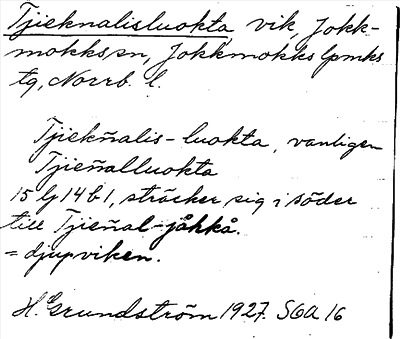 Tjieknalisluokta, vik, Jokk-
mokks sn, Jokkmokks lpmks
tg, Norrb. l.
Tjiekñalis-luokta, vanligen
Tjieñalluokta
15 lj 14 b 1, sträcker sig i söder
till Tjieñal-jåhkå.
= djupviken.
H. Grundström 1927. SOA 16